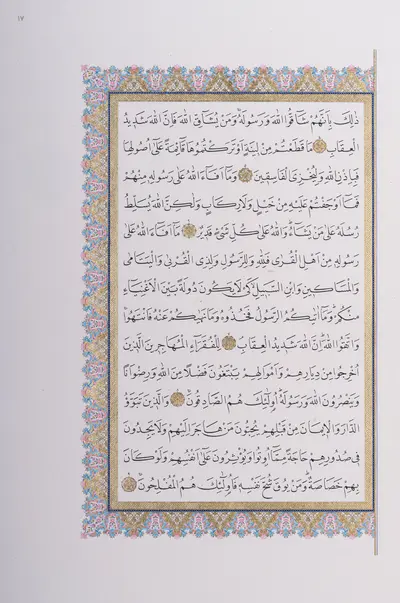 ١٧
ذٰلِكَ بِاَنَّهُمْ شَاقُّوا اللّٰهَ وَرَسُولَهُ وَمَنْ يُشَاقِّ اللّٰهَ فَاِنَّ اللّٰهَ شَدِيدُ
الْعِقَابِ مَا قَطَعْتُمْ مِنْ لِينَةٍ اَوْ تَرَكْتُمُوهَا قَائِمَةً عَلٰى اُصُولِهَا
فَبِاِذْنِ اللّٰهِ وَلِيُخْزِيَ الْفَاسِقِينَ وَمَا اَفَاءَ اللّٰهُ عَلٰى رَسُولِهِ مِنْهُمْ
فَمَا اَوْجَفْتُمْ عَلَيْهِ مِنْ خَيْلٍ وَلَا رِكَابٍ وَلٰكِنَّ اللّٰهَ يُسَلِّطُ
رُسُلَهُ عَلٰى مَنْ يَشَاءُ وَاللّٰهُ عَلٰى كُلِّ شَيْءٍ قَدِيرٌ مَا اَفَاءَ اللّٰهُ عَلٰى
رَسُولِهِ مِنْ اَهْلِ الْقُرٰى فَلِلّٰهِ وَلِلرَّسُولِ وَلِذِي الْقُرْبٰى وَالْيَتَامٰى
وَالْمَسَاكِينِ وَابْنِ السَّبِيلِ كَيْ لَا يَكُونَ دُولَةً بَيْنَ الْاَغْنِيَاءِ
مِنْكُمْ وَمَا اٰتٰيكُمُ الرَّسُولُ فَخُذُوهُ وَمَا نَهٰيكُمْ عَنْهُ فَانْتَهُوا
وَاتَّقُوا اللّٰهَ اِنَّ اللّٰهَ شَدِيدُ الْعِقَابِ لِلْفُقَرَاءِ الْمُهَاجِرِينَ الَّذِينَ
اُخْرِجُوا مِنْ دِيَارِهِمْ وَاَمْوَالِهِمْ يَبْتَغُونَ فَضْلًا مِنَ اللّٰهِ وَرِضْوَانًا
وَيَنْصُرُونَ اللّٰهَ وَرَسُولَهُ اُولٰئِكَ هُمُ الصَّادِقُونَ وَالَّذِينَ تَبَوَّؤُ
الدَّارَ وَالْاِيمَانَ مِنْ قَبْلِهِمْ يُحِبُّونَ مَنْ هَاجَرَ اِلَيْهِمْ وَلَا يَجِدُونَ
فِي صُدُورِهِمْ حَاجَةً مِمَّا اُوتُوا وَيُؤْثِرُونَ عَلٰى اَنْفُسِهِمْ وَلَوْ كَانَ
بِهِمْ خَصَاصَةٌ وَمَنْ يُوقَ شُحَّ نَفْسِهِ فَاُولٰئِكَ هُمُ الْمُفْلِحُونَ